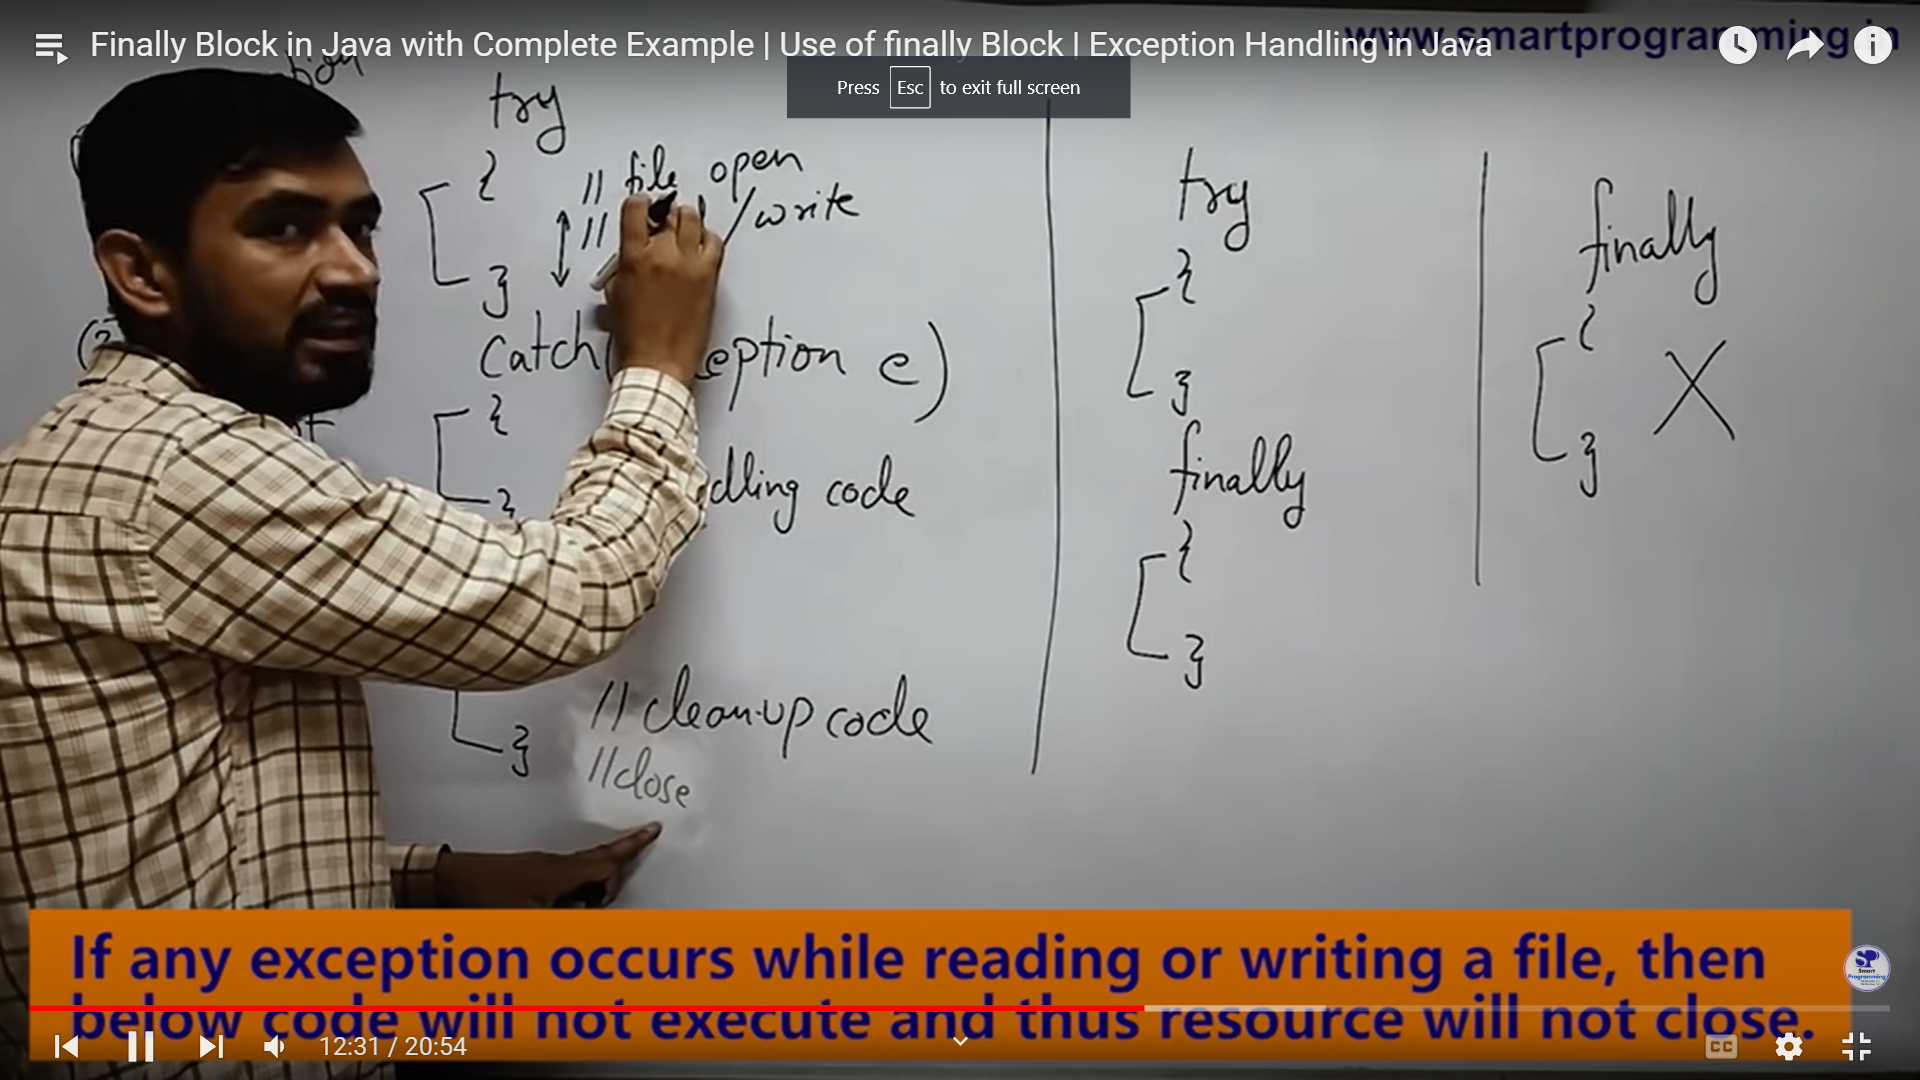 Finally Block in Java with Complete Example | Use of finally Block | Exception Handling in Java
www.smartprogramming.in
Press Esc to exit full screen
try
{
// file open
// /write
}
catch( eption e)
{
dling code
}
// clean-up code
}
// close
try
{
}
finally
{
}
finally
{
X
}
If any exception occurs while reading or writing a file, then
below code will not execute and thus resource will not close.
SP
Smart
Programming
12:31 / 20:54
CC